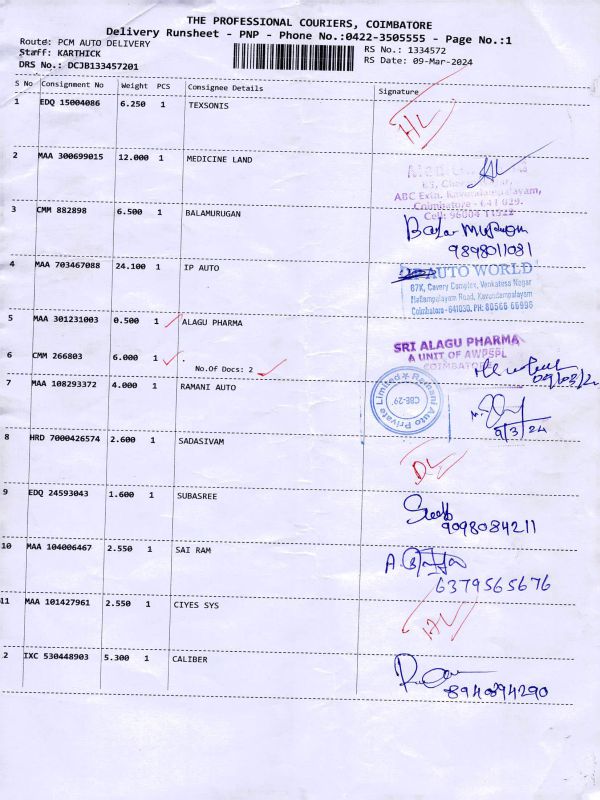 THE PROFESSIONAL COURIERS, COIMBATORE
Delivery Runsheet - PNP - Phone No.:0422-3505555 - Page No.:1
Route: PCM AUTO DELIVERY
RS No.: 1334572
Staff: KARTHICK
RS Date: 09-Mar-2024
DRS No.: DCJB133457201
S No Consignment No Weight PCS Consignee Details Signature
1 EDQ 15004086 6.250 1 TEXSONIS
HL
2 MAA 300699015 12.000 1 MEDICINE LAND
ABC Extn. Kavundampalayam,
Coimbatore - 641 029.
3 CMM 882898 6.500 1 BALAMURUGAN
Balamurugan
9898011081
4 MAA 703467088 24.100 1 IP AUTO
IP AUTO WORLD
67K, Cavery Complex, Venkatesa Nagar
Nallampalayam Road, Kavundampalayam
Coimbatore-641030, PH: 80566 66996
5 MAA 301231003 0.500 1 ALAGU PHARMA
SRI ALAGU PHARMA
A UNIT OF AWPSPL
COIMBATORE
6 CMM 266803 6.000 1
No.Of Docs: 2
7 MAA 108293372 4.000 1 RAMANI AUTO
Ramani Auto Private Limited
CBE-29
9/3/24
8 HRD 7000426574 2.600 1 SADASIVAM
DL
9 EDQ 24593043 1.600 1 SUBASREE
9098084211
10 MAA 104006467 2.550 1 SAI RAM
6379565676
11 MAA 101427961 2.550 1 CIYES SYS
HL
2 IXC 530448903 5.300 1 CALIBER
8940894290